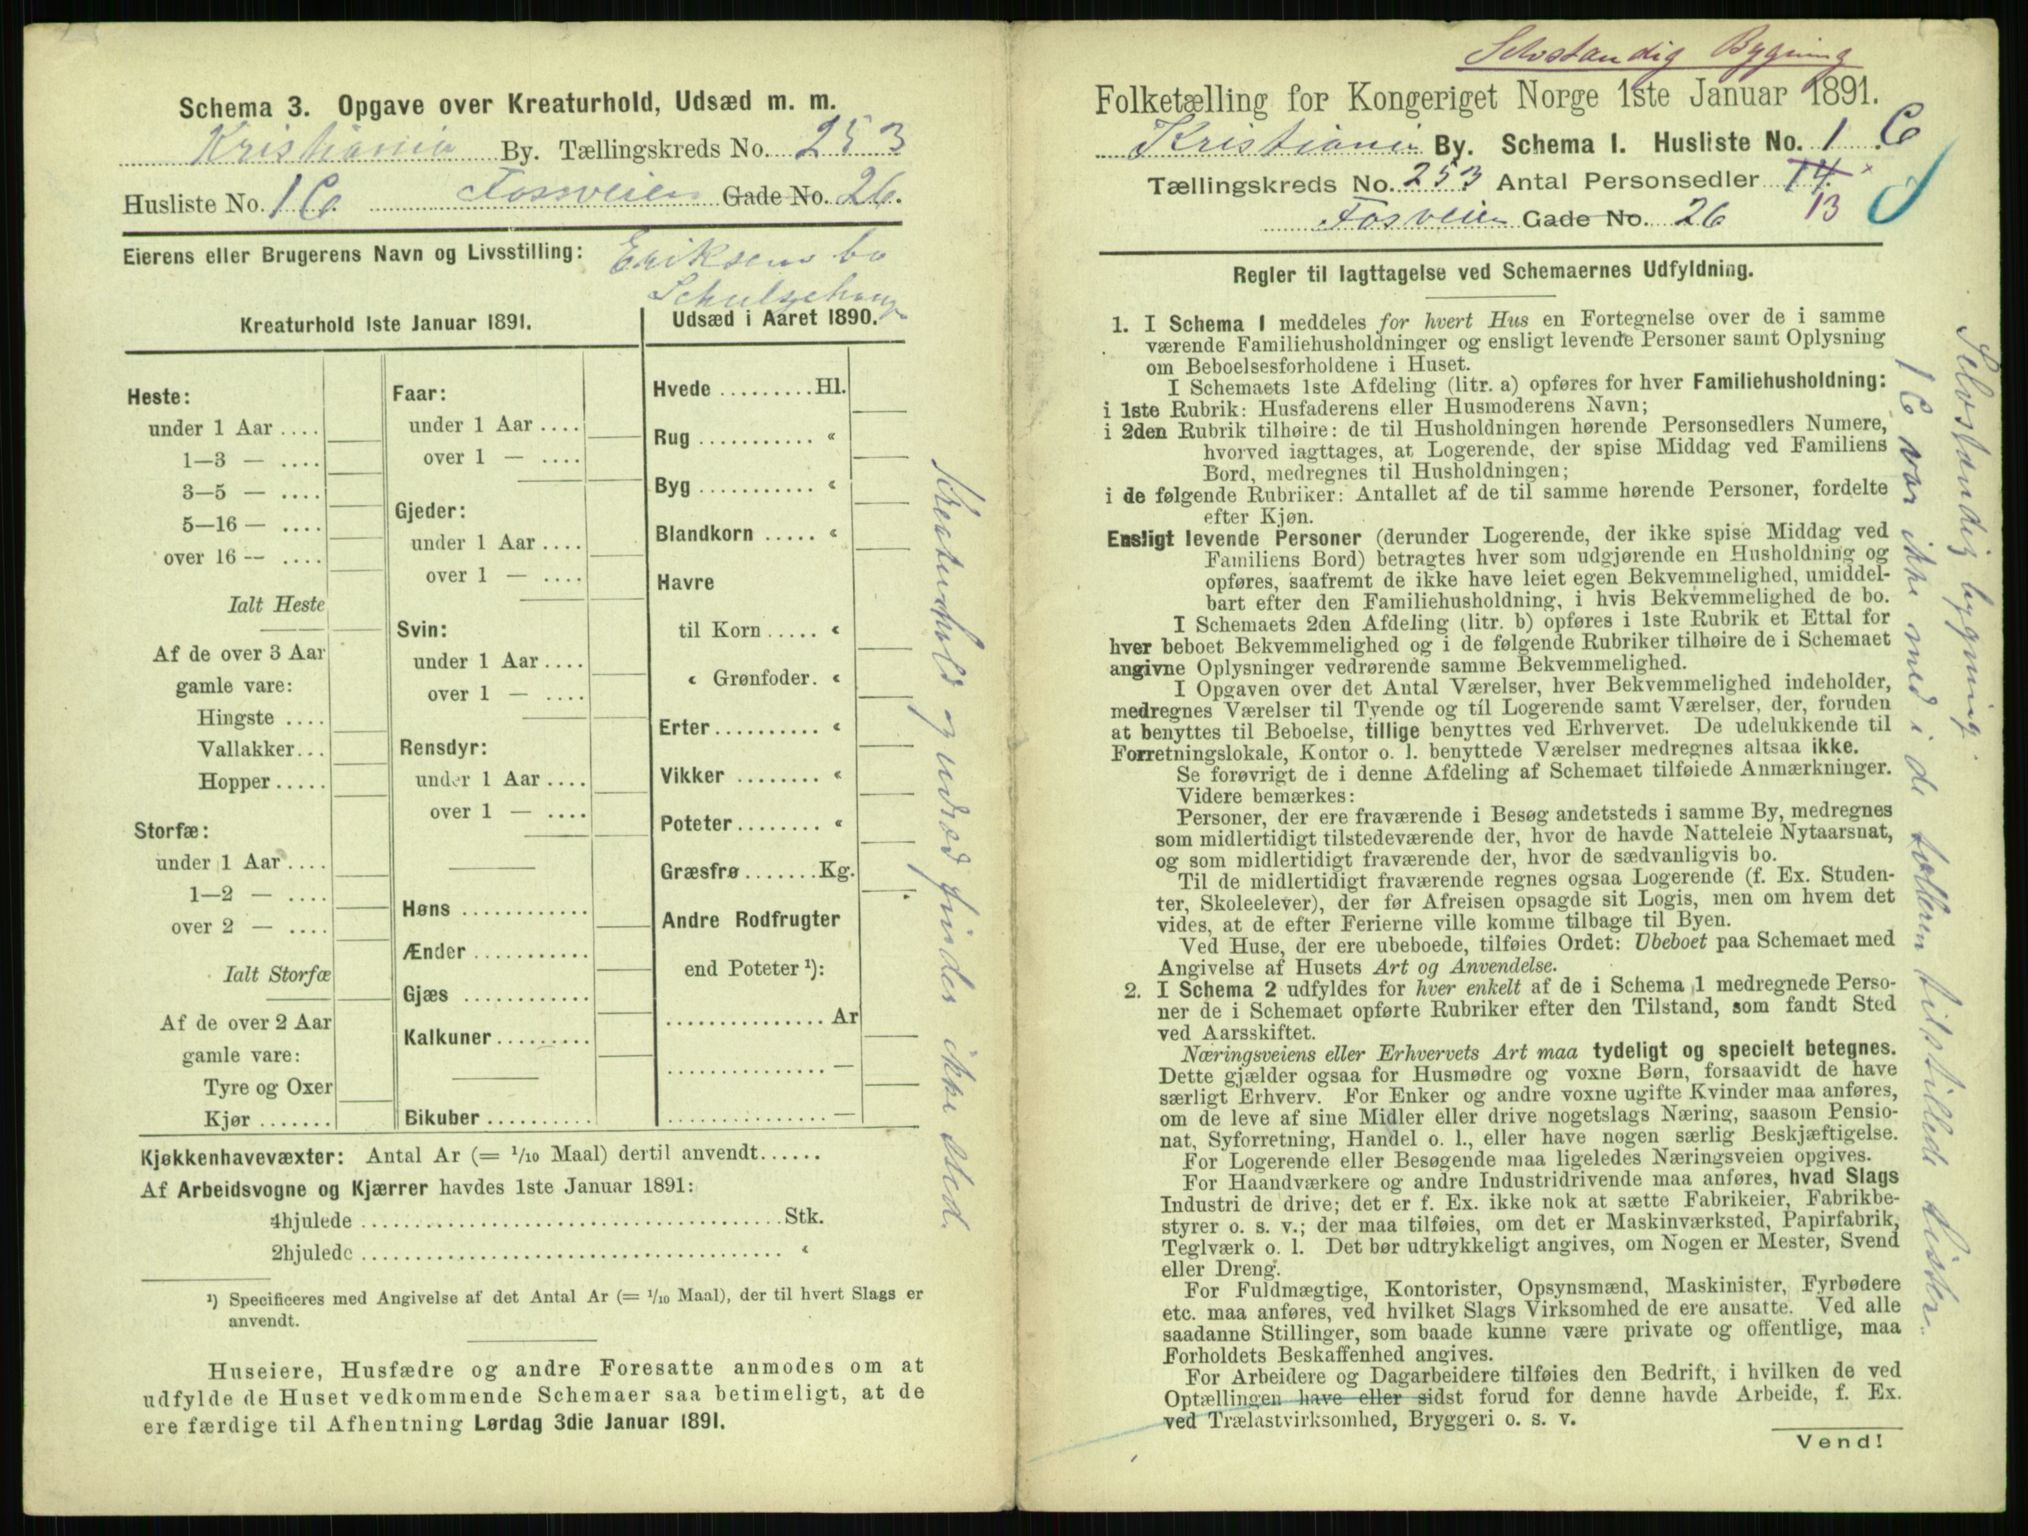 Schema 3. Opgave over Kreaturhold, Udsæd m. m.
Kristiania By. Tællingskreds No. 253
Husliste No. 1 C. Fosveien Gade No. 26.
Eierens eller Brugerens Navn og Livsstilling: Eriksens bo
Kreaturhold 1ste Januar 1891.
Heste:
under 1 Aar ....
1—3 — ....
3—5 — ....
5—16 — ....
over 16 — ....
Ialt Heste
Af de over 3 Aar
gamle vare:
Hingste ....
Vallakker...
Hopper.....
Storfæ:
under 1 Aar ....
1—2 — ....
over 2 — ....
Ialt Storfæ
Af de over 2 Aar
gamle vare:
Tyre og Oxer
Kjør .......
Faar:
under 1 Aar ....
over 1 — ....
Gjeder:
under 1 Aar ....
over 1 — ....
Svin:
under 1 Aar ....
over 1 — ....
Rensdyr:
under 1 Aar ....
over 1 — ....
Høns ............
Ænder ...........
Gjæs ............
Kalkuner.........
Bikuber ..........
Udsæd i Aaret 1890.
Hvede .........Hl.
Rug ........... «
Byg ........... «
Blandkorn ..... «
Havre
til Korn ..... «
« Grønfoder. «
Erter.......... «
Vikker ........ «
Poteter........ «
Græsfrø.......Kg.
Andre Rodfrugter
end Poteter ¹):
............... Ar
............... —
............... —
Kreaturhold og udsæd finder ikke sted.
Kjøkkenhavevæxter: Antal Ar (= 1/10 Maal) dertil anvendt......
Af Arbeidsvogne og Kjærrer havdes 1ste Januar 1891:
4hjulede ........................................Stk.
2hjulede ........................................ «
¹) Specificeres med Angivelse af det Antal Ar (= 1/10 Maal), der til hvert Slags er
anvendt.
Huseiere, Husfædre og andre Foresatte anmodes om at
udfylde de Huset vedkommende Schemaer saa betimeligt, at de
ere færdige til Afhentning Lørdag 3die Januar 1891.
Selvstændig Bygning
Folketælling for Kongeriget Norge 1ste Januar 1891.
Kristiania By. Schema I. Husliste No. 1 C
Tællingskreds No. 253 Antal Personsedler 14
Fosveien Gade No. 26 13
Regler til Iagttagelse ved Schemaernes Udfyldning.
1. I Schema 1 meddeles for hvert Hus en Fortegnelse over de i samme
værende Familiehusholdninger og ensligt levende Personer samt Oplysning
om Beboelsesforholdene i Huset.
I Schemaets 1ste Afdeling (litr. a) opføres for hver Familiehusholdning:
i 1ste Rubrik: Husfaderens eller Husmoderens Navn;
i 2den Rubrik tilhøire: de til Husholdningen hørende Personsedlers Numere,
hvorved iagttages, at Logerende, der spise Middag ved Familiens
Bord, medregnes til Husholdningen;
i de følgende Rubriker: Antallet af de til samme hørende Personer, fordelte
efter Kjøn.
Ensligt levende Personer (derunder Logerende, der ikke spise Middag ved
Familiens Bord) betragtes hver som udgjørende en Husholdning og
opføres, saafremt de ikke have leiet egen Bekvemmelighed, umiddel-
bart efter den Familiehusholdning, i hvis Bekvemmelighed de bo.
I Schemaets 2den Afdeling (litr. b) opføres i 1ste Rubrik et Ettal for
hver beboet Bekvemmelighed og i de følgende Rubriker tilhøire de i Schemaet
angivne Oplysninger vedrørende samme Bekvemmelighed.
I Opgaven over det Antal Værelser, hver Bekvemmelighed indeholder,
medregnes Værelser til Tyende og til Logerende samt Værelser, der, foruden
at benyttes til Beboelse, tillige benyttes ved Erhvervet. De udelukkende til
Forretningslokale, Kontor o. l. benyttede Værelser medregnes altsaa ikke.
Se forøvrigt de i denne Afdeling af Schemaet tilføiede Anmærkninger.
Videre bemærkes:
Personer, der ere fraværende i Besøg andetsteds i samme By, medregnes
som midlertidigt tilstedeværende der, hvor de havde Natteleie Nytaarsnat,
og som midlertidigt fraværende der, hvor de sædvanligvis bo.
Til de midlertidigt fraværende regnes ogsaa Logerende (f. Ex. Studen-
ter, Skoleelever), der før Afreisen opsagde sit Logis, men om hvem det
vides, at de efter Ferierne ville komme tilbage til Byen.
Ved Huse, der ere ubeboede, tilføies Ordet: Ubeboet paa Schemaet med
Angivelse af Husets Art og Anvendelse.
2. I Schema 2 udfyldes for hver enkelt af de i Schema 1 medregnede Perso-
ner de i Schemaet opførte Rubriker efter den Tilstand, som fandt Sted
ved Aarsskiftet.
Næringsveiens eller Erhvervets Art maa tydeligt og specielt betegnes.
Dette gjælder ogsaa for Husmødre og voxne Børn, forsaavidt de have
særligt Erhverv. For Enker og andre voxne ugifte Kvinder maa anføres,
om de leve af sine Midler eller drive nogetslags Næring, saasom Pensio-
nat, Syforretning, Handel o. l., eller have nogen særlig Beskjæftigelse.
For Logerende eller Besøgende maa ligeledes Næringsveien opgives.
For Haandværkere og andre Industridrivende maa anføres, hvad Slags
Industri de drive; det er f. Ex. ikke nok at sætte Fabrikeier, Fabrikbe-
styrer o. s. v.; der maa tilføies, om det er Maskinværksted, Papirfabrik,
Teglværk o. l. Det bør udtrykkeligt angives, om Nogen er Mester, Svend
eller Dreng.
For Fuldmægtige, Kontorister, Opsynsmænd, Maskinister, Fyrbødere
etc. maa anføres, ved hvilket Slags Virksomhed de ere ansatte. Ved alle
saadanne Stillinger, som baade kunne være private og offentlige, maa
Forholdets Beskaffenhed angives.
For Arbeidere og Dagarbeidere tilføies den Bedrift, i hvilken de ved
Optællingen have eller sidst forud for denne havde Arbeide, f. Ex.
ved Trælastvirksomhed, Bryggeri o. s. v.
Vend!
Selvstændig bygning.
1 C var ikke med i de tælleren tilstillede lister.